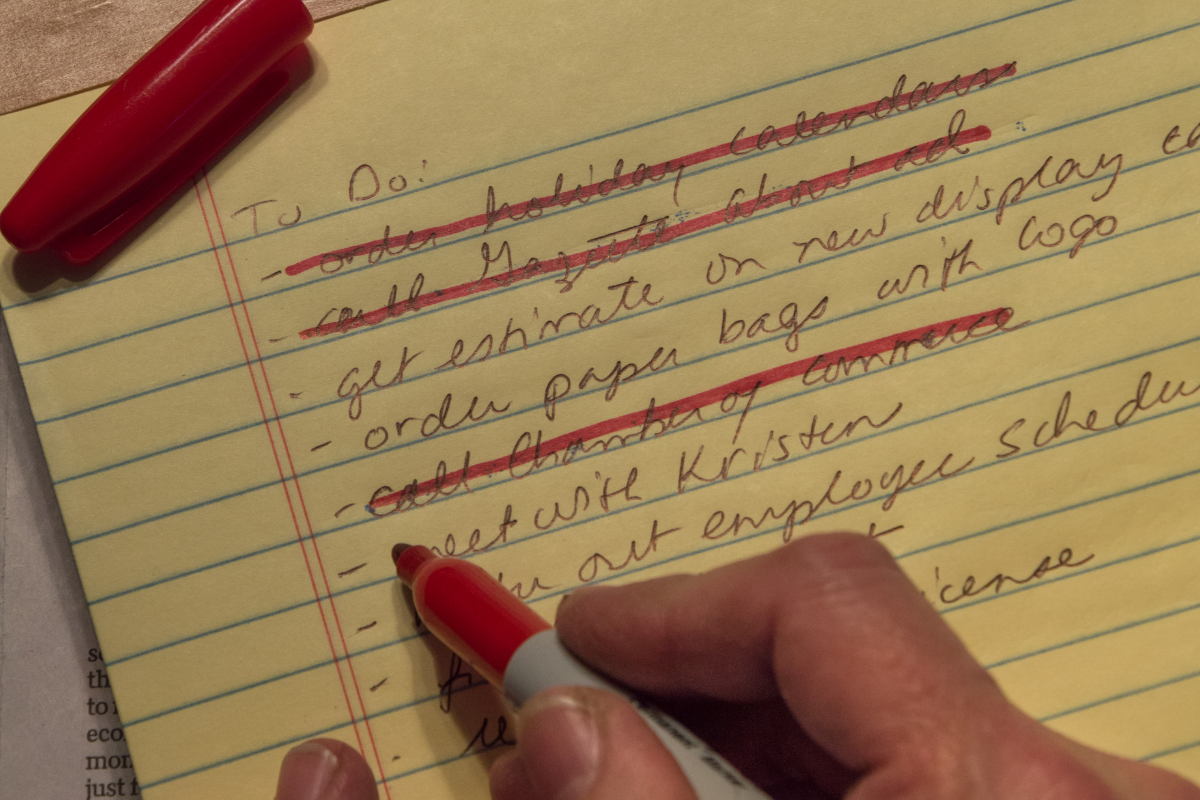 To Do:
- order holiday calendars
- call Gazette about ad
- get estimate on new display
- order paper bags with logo
- call Chamber of commerce
- meet with Kristen
- out employee Schedu
-
- icense
th
to
eco
mon
just f